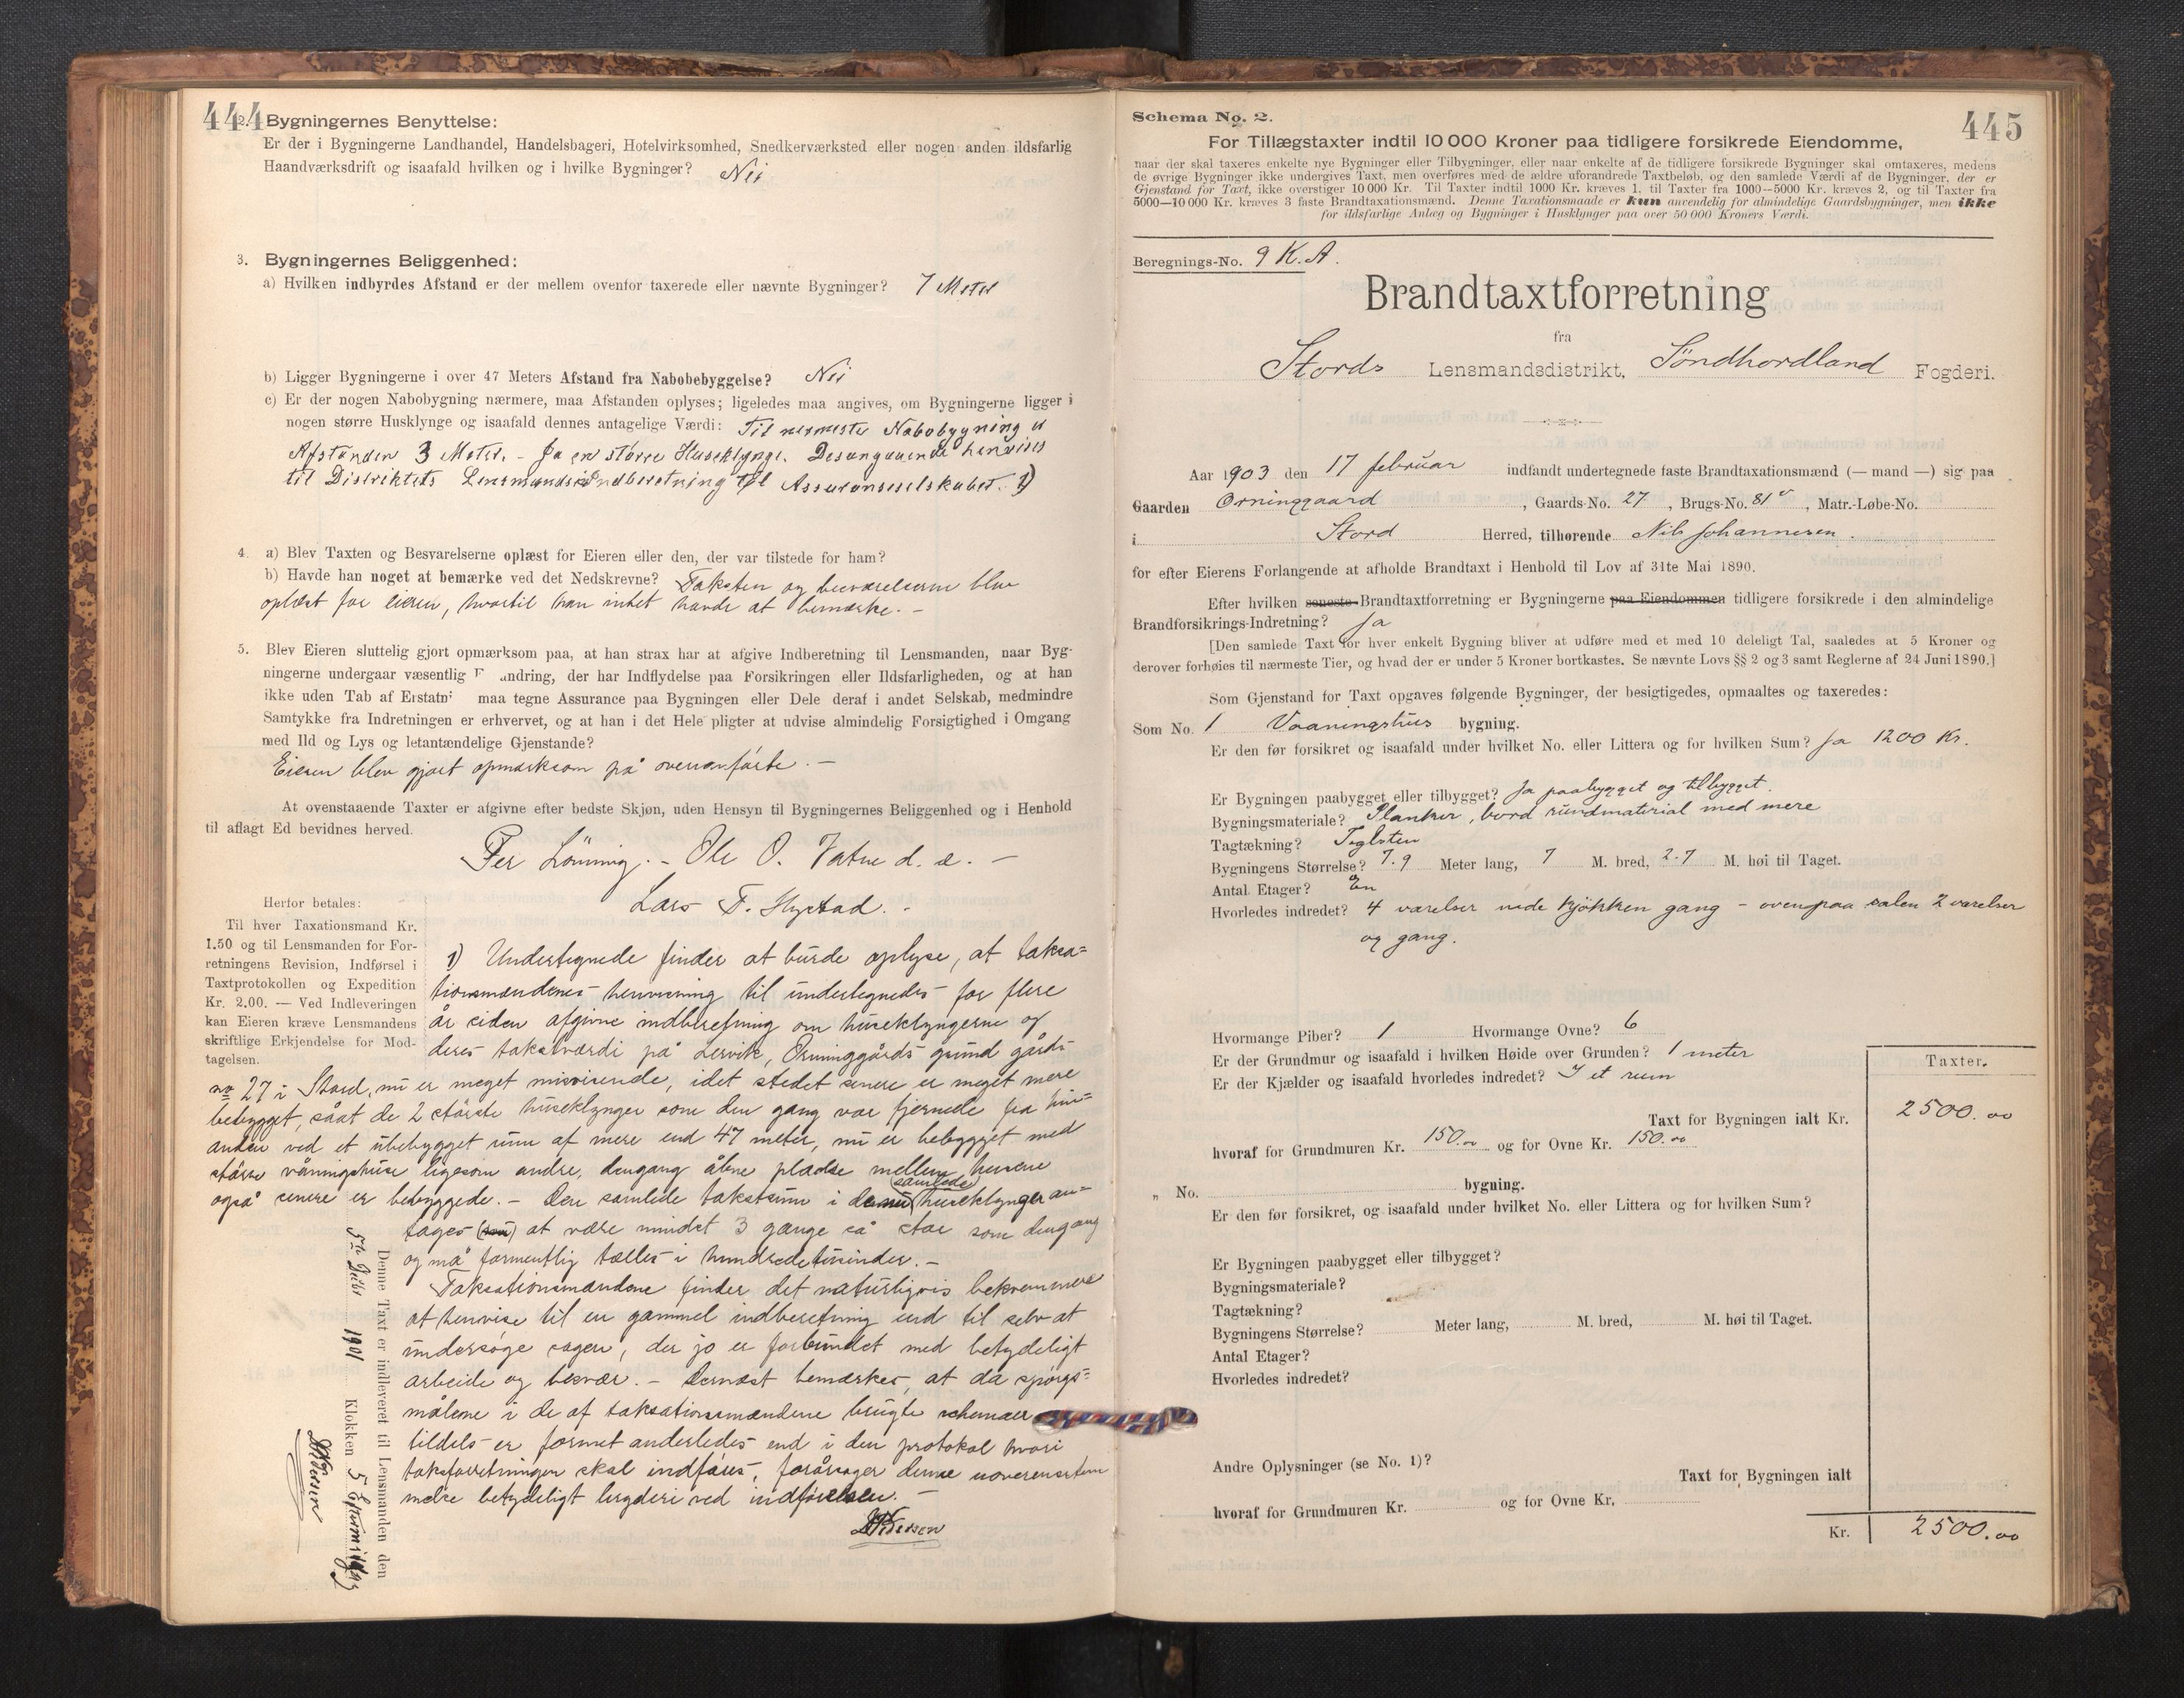 444
2. Bygningernes Benyttelse:
Er der i Bygningerne Landhandel, Handelsbageri, Hotelvirksomhed, Snedkerværksted eller nogen anden ildsfarlig
Haandværksdrift og isaafald hvilken og i hvilke Bygninger? Nei
3. Bygningernes Beliggenhed:
a) Hvilken indbyrdes Afstand er der mellem ovenfor taxerede eller nævnte Bygninger? 7 Meter
b) Ligger Bygningerne i over 47 Meters Afstand fra Nabobebyggelse? Nei
c) Er der nogen Nabobygning nærmere, maa Afstanden oplyses; ligeledes maa angives, om Bygningerne ligger i
nogen større Husklynge og isaafald dennes antagelige Værdi: Til nermeste Nabobygning er
Afstanden 3 Meter. - Ja en større Huseklynge. Desangaaende henvises
til Distriktets Lensmands Indberetning til Assuranseselskabet. 1)
4. a) Blev Taxten og Besvarelserne oplæst for Eieren eller den, der var tilstede for ham?
b) Havde han noget at bemærke ved det Nedskrevne? Taksten og besvarelserne blev
oplæst for eieren, hvortil han intet havde at bemærke. -
5. Blev Eieren sluttelig gjort opmærksom paa, at han strax har at afgive Indberetning til Lensmanden, naar Byg-
ningerne undergaar væsentlig F andring, der har Indflydelse paa Forsikringen eller Ildsfarligheden, og at han
ikke uden Tab af Erstatn maa tegne Assurance paa Bygningen eller Dele deraf i andet Selskab, medmindre
Samtykke fra Indretningen er erhvervet, og at han i det Hele pligter at udvise almindelig Forsigtighed i Omgang
med Ild og Lys og letantændelige Gjenstande?
Eieren blev gjort opmærksom på ovenanførte. -
At ovenstaaende Taxter er afgivne efter bedste Skjøn, uden Hensyn til Bygningernes Beliggenhed og i Henhold
til aflagt Ed bevidnes herved.
Per Lönning. - Ole O. Vatne d. e. -
Lars T. Hystad. -
Herfor betales:
Til hver Taxationsmand Kr.
1.50 og til Lensmanden for For-
retningens Revision, Indførsel i
Taxtprotokollen og Expedition
Kr. 2.00. — Ved Indleveringen
kan Eieren kræve Lensmandens
skriftlige Erkjendelse for Mod-
tagelsen.
1) Undertegnede finder at burde oplyse, at taksa=
tionsmændenes henvisning til undertegnedes for flere
år siden afgivne indberetning om huseklyngerne og
deres takstværdi på Lervik, Ørninggårds grund gårds
no 27 i Stord, nu er meget misvisende, idet stedet senere er meget mere
bebygget, såat de 2 største huseklynger som den gang var fjernede fra hin=
anden ved et ubebygget rum af mere end 47 meter, nu er bebygget med
større våningshuse ligesom andre, dengang åbne pladse mellem husene
også senere er bebyggede. - Den samlede takstsum i de nu (samlede) huseklynger an=
tages at være mindst 3 gange så stor som dengang
og må formentlig tælles i hundredetusinder. -
Taksationsmændene finder det naturligvis bekvemmere
at henvise til en gammel indberetning end til selv at
undersøge sagen, der jo er forbundet med betydeligt
arbeide og besvær. - Dernæst bemærkes, at da spørgs=
målene i de af taksationsmændene brugte schemaer
tildels er formet anderledes end i den protokol hvori
takstforretninger skal indføres, forårsager denne uoverensstem
melse betydeligt bryderi ved indførelsen. -
Denne Taxt er indleveret til Lensmanden den
5te Juli 1901 Klokken 5 Eftermidag
445
Schema No. 2.
For Tillægstaxter indtil 10 000 Kroner paa tidligere forsikrede Eiendomme,
naar der skal taxeres enkelte nye Bygninger eller Tilbygninger, eller naar enkelte af de tidligere forsikrede Bygninger skal omtaxeres, medens
de øvrige Bygninger ikke undergives Taxt, men overføres med de ældre uforandrede Taxtbeløb, og den samlede Værdi af de Bygninger, der er
Gjenstand for Taxt, ikke overstiger 10 000 Kr. Til Taxter indtil 1000 Kr. kræves 1, til Taxter fra 1000—5000 Kr. kræves 2, og til Taxter fra
5000—10 000 Kr. kræves 3 faste Brandtaxationsmænd. Denne Taxationsmaade er kun anvendelig for almindelige Gaardsbygninger, men ikke
for ildsfarlige Anlæg og Bygninger i Husklynger paa over 50 000 Kroners Værdi.
Beregnings-No. 9 K. A.
Brandtaxtforretning
fra
Stords Lensmandsdistrikt, Söndhordland Fogderi.
Aar 1903 den 17 februar indfandt undertegnede faste Brandtaxationsmænd (— mand —) sig paa
Gaarden Orninggaard, Gaards-No. 27, Brugs-No. 81, Matr.-Løbe-No.
i Stord Herred, tilhørende Nils Johannesen.
for efter Eierens Forlangende at afholde Brandtaxt i Henhold til Lov af 31te Mai 1890.
Efter hvilken seneste Brandtaxtforretning er Bygningerne paa Eiendommen tidligere forsikrede i den almindelige
Brandforsikrings-Indretning? Ja
[Den samlede Taxt for hver enkelt Bygning bliver at udføre med et med 10 deleligt Tal, saaledes at 5 Kroner og
derover forhøies til nærmeste Tier, og hvad der er under 5 Kroner bortkastes. Se nævnte Lovs §§ 2 og 3 samt Reglerne af 24 Juni 1890.]
Som Gjenstand for Taxt opgaves følgende Bygninger, der besigtigedes, opmaaltes og taxeredes:
Som No. 1 Vaaningshus bygning.
Er den før forsikret og isaafald under hvilket No. eller Littera og for hvilken Sum? Ja 1200 Kr.
Er Bygningen paabygget eller tilbygget? Ja paabygget og tilbygget.
Bygningsmateriale? Planker, bord rundmaterial med mere
Tagtækning? Teglsten
Bygningens Størrelse? 7.9 Meter lang, 7 M. bred, 2.7 M. høi til Taget.
Antal Etager? En
Hvorledes indredet? 4 værelser nede kjøkken gang - ovenpaa salen 2 værelser
og gang.
Hvormange Piber? 1 Hvormange Ovne? 6
Er der Grundmur og isaafald i hvilken Høide over Grunden? 1 meter
Er der Kjælder og isaafald hvorledes indredet? I et rum
Taxter.
Taxt for Bygningen ialt Kr. 2500.00
hvoraf for Grundmuren Kr. 150.00 og for Ovne Kr. 150.00
„ No. bygning.
Er den før forsikret, og isaafald under hvilket No. eller Littera og for hvilken Sum?
Er Bygningen paabygget eller tilbygget?
Bygningsmateriale?
Tagtækning?
Bygningens Størrelse? Meter lang, M. bred, M. høi til Taget.
Antal Etager?
Hvorledes indredet?
Andre Oplysninger (se No. 1)?
Taxt for Bygningen ialt
hvoraf for Grundmuren Kr. og for Ovne Kr.
Kr. 2500.00